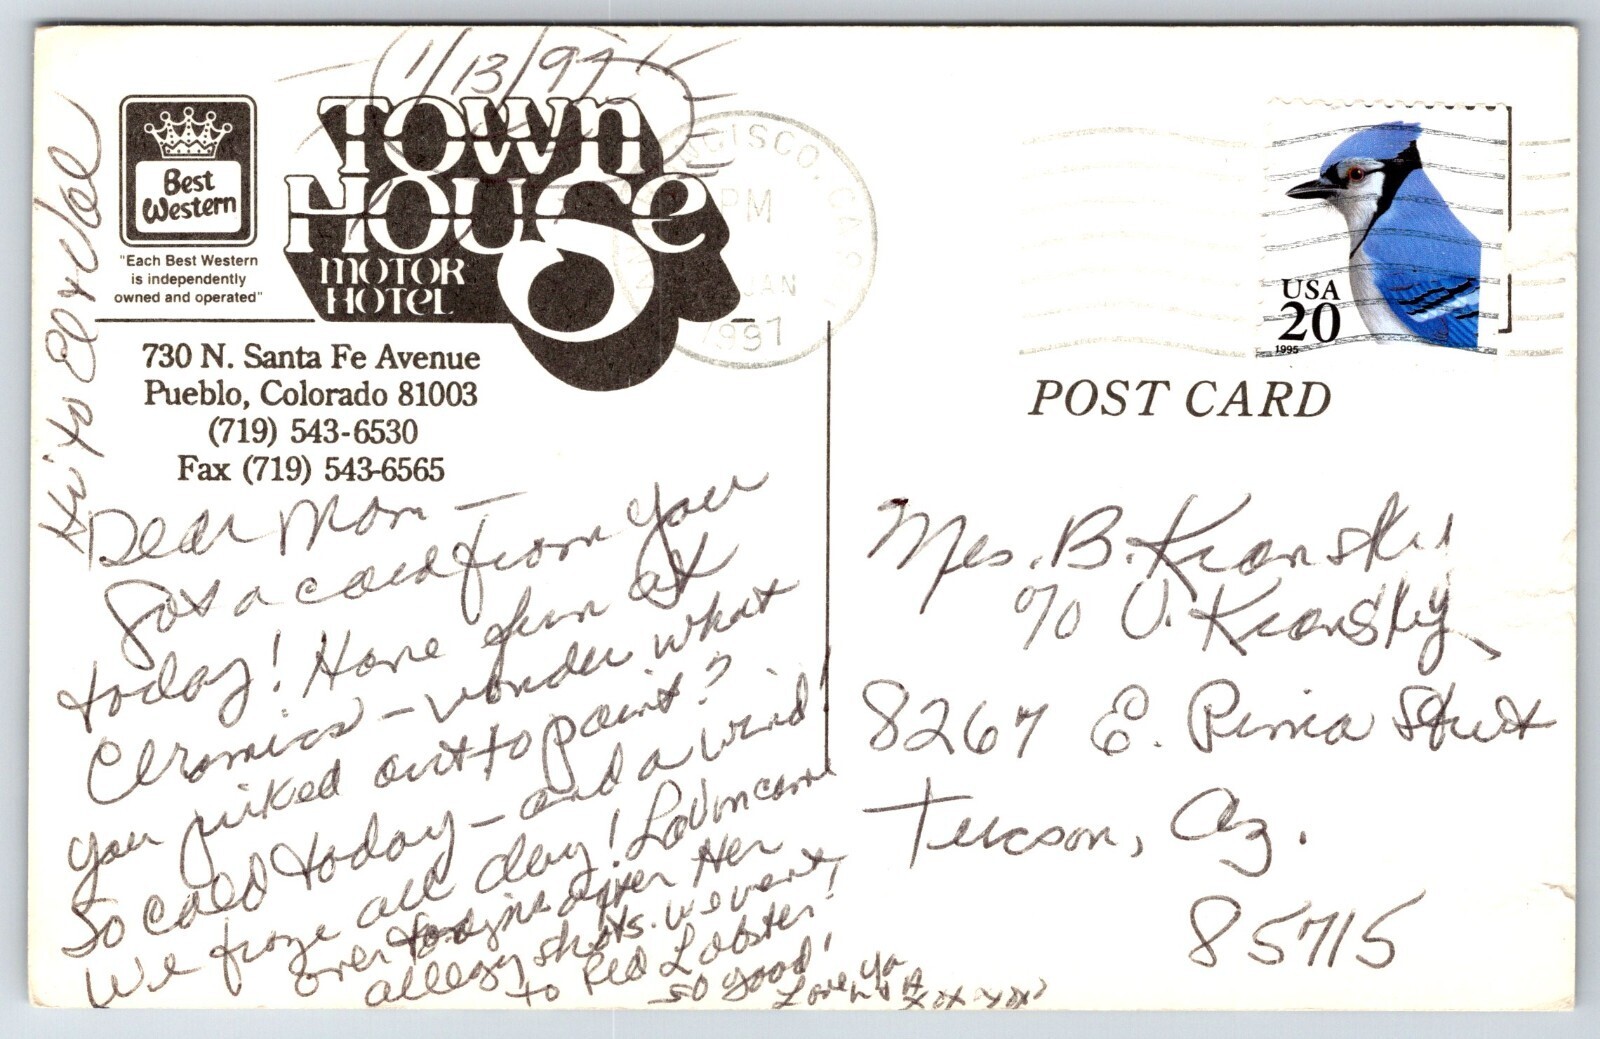 1/13/97
Best
Western
"Each Best Western
is independently
owned and operated"
TOWN
HOUSE
MOTOR
HOTEL
730 N. Santa Fe Avenue
Pueblo, Colorado 81003
(719) 543-6530
Fax (719) 543-6565
CISCO, CA
PM
JAN
1997
USA
20
1995
POST CARD
Hi to El & Val
Dear Mom -
Got a card from you
today! Have fun at
Ceramics - wonder what
you picked out to paint?
So cold today - and a wind!
We froze all day! LaVon came
over to give after Her
allergy shots. We went
to Red Lobster!
so good!
Love ya
xox xox
Mrs. B. Kransky
c/o V. Kransky
8267 E. Pima Street
Tucson, Az.
85715